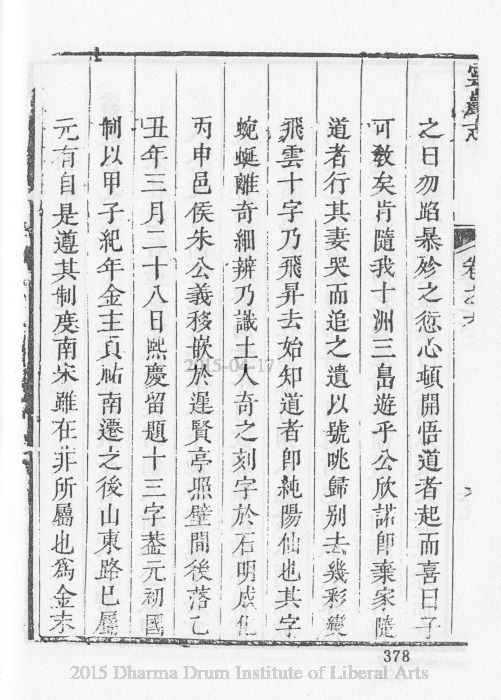 之曰勿蹈暴殄之愆心頓開悟道者起而喜曰子
可敎矣肯隨我十洲三島遊乎公欣諾卽棄家隨
道者行其妻哭而追之遺以號咷歸别去幾彩變
飛雲十字乃飛昇去始知道者卽純陽仙也其字
蜿蜒離奇細辨乃識土人奇之刻字於石明成化
丙申邑侯朱公義移嵌於遲賢亭照壁間後落乙
丑年三月二十八日熙慶留題十三字葢元初國
制以甲子紀年金主貞祐南遷之後山東路已屬
元有自是遵其制度南宋雖在非所屬也爲金末
卷之六
378
2015-04-17
2015 Dharma Drum Institute of Liberal Arts